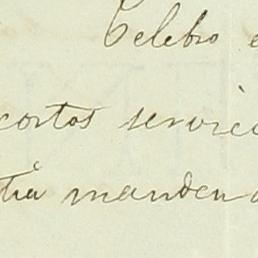 Celebro e
cortos servici
tra manden a